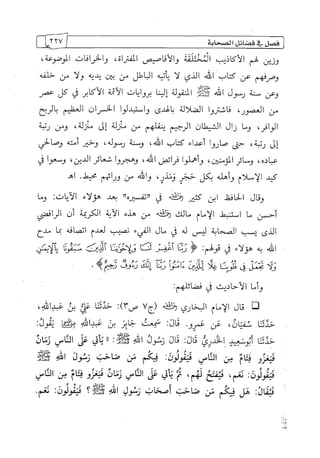 فصل في فضائل الصحابة
٢٢٧
وزين لهم الأكاذيب المُخْتَلَقَة والأقاصيص المفتراة، والخرافات الموضوعة،
وصرفهم عن كتاب الله الذي لا يأتيه الباطل من بين يديه ولا من خلفه
وعن سنة رسول الله ﷺ المنقولة إلينا بروايات الأئمة الأكابر في كل عصر
من العصور، فاشتروا الضلالة بالهدى واستبدلوا الخسران العظيم بالربح
الوافر، وما زال الشيطان الرجيم ينقلهم من منزلة إلى منزلة، ومن رتبة
إلى رتبة، حتى صاروا أعداء كتاب الله، وسنة رسوله، وخير أمته وصالحي
عباده، وسائر المؤمنين، وأهملوا فرائض الله، وهجروا شعائر الدين، وسعوا في
كيد الإسلام وأهله بكل حَجَرٍ ومَدَرٍ، والله من ورائهم محيط. اهـ
وقال الحافظ ابن كثير في «تفسيره» بعد هؤلاء الآيات: وما
أحسن ما استنبط الإمام مالك من هذه الآية الكريمة أن الرافضي
الذي يسب الصحابة ليس له في مال الفيء نصيب لعدم اتصافه بما مدح
الله به هؤلاء في قولهم: ﴿رَبَّنَا اغْفِرْ لَنَا وَلِإِخْوَانِنَا الَّذِينَ سَبَقُونَا بِالْإِيمَانِ
وَلَا تَجْعَلْ فِي قُلُوبِنَا غِلًّا لِلَّذِينَ ءَامَنُوا رَبَّنَا إِنَّكَ رَءُوفٌ رَحِيمٌ﴾.
وأما الأحاديث في فضائلهم:
❑ قال الإمام البخاري (ج٧ ص٣): حَدَّثَنَا عَلِيُّ بنُ عَبدِاللهِ،
حَدَّثَنَا سُفيَانُ، عَن عَمرٍو. قَالَ: سَمِعتُ جَابِرَ بنَ عَبدِاللهِ يَقُولُ:
حَدَّثَنَا أَبُوسَعِيدٍ الخُدرِيُّ قَالَ: قَالَ رَسُولُ اللهِ ﷺ: «يَأتِي عَلَى النَّاسِ زَمَانٌ
فَيَغزُو فِئَامٌ مِنَ النَّاسِ فَيَقُولُونَ: فِيكُم مَن صَاحَبَ رَسُولَ اللهِ ﷺ
فَيَقُولُونَ: نَعَم، فَيُفتَحُ لَهُم، ثُمَّ يَأتِي عَلَى النَّاسِ زَمَانٌ فَيَغزُو فِئَامٌ مِنَ النَّاسِ
فَيُقَالُ: هَل فِيكُم مَن صَاحَبَ أَصحَابَ رَسُولِ اللهِ ﷺ؟ فَيَقُولُونَ: نَعَم.